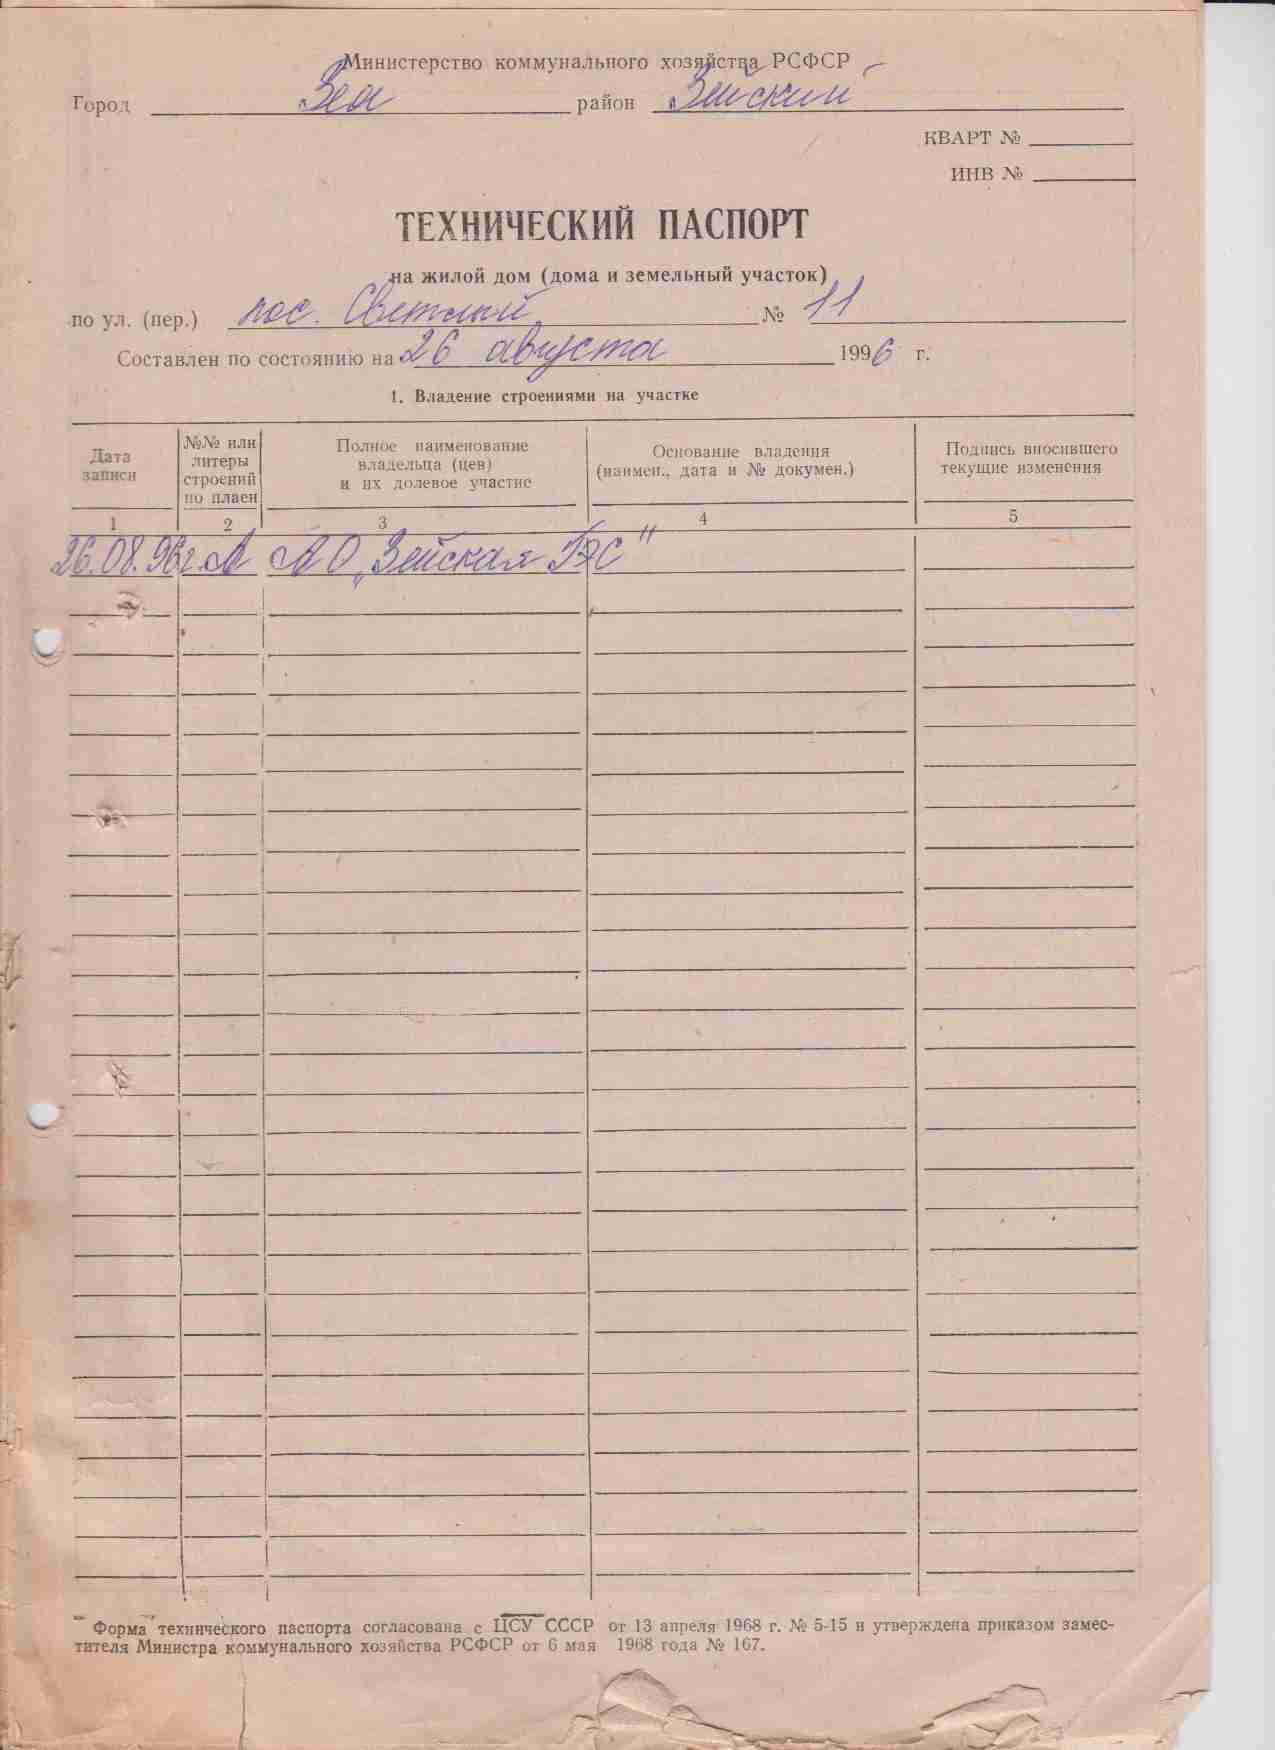 Министерство коммунального хозяйства РСФСР
Город Зея район Зейский
КВАРТ №
ИНВ №
ТЕХНИЧЕСКИЙ ПАСПОРТ
на жилой дом (дома и земельный участок)
по ул. (пер.) пос. Светлый № 11
Составлен по состоянию на 26 августа 1996 г.
1. Владение строениями на участке
Дата записи
№№ или литеры строений по плаен
Полное наименование владельца (цев) и их долевое участие
Основание владения (наимен., дата и № докумен.)
Подпись вносившего текущие изменения
1 2 3 4 5
26.08.96г. А АО „Зейская ГЭС"
Форма технического паспорта согласована с ЦСУ СССР от 13 апреля 1968 г. № 5-15 и утверждена приказом замес-
тителя Министра коммунального хозяйства РСФСР от 6 мая 1968 года № 167.